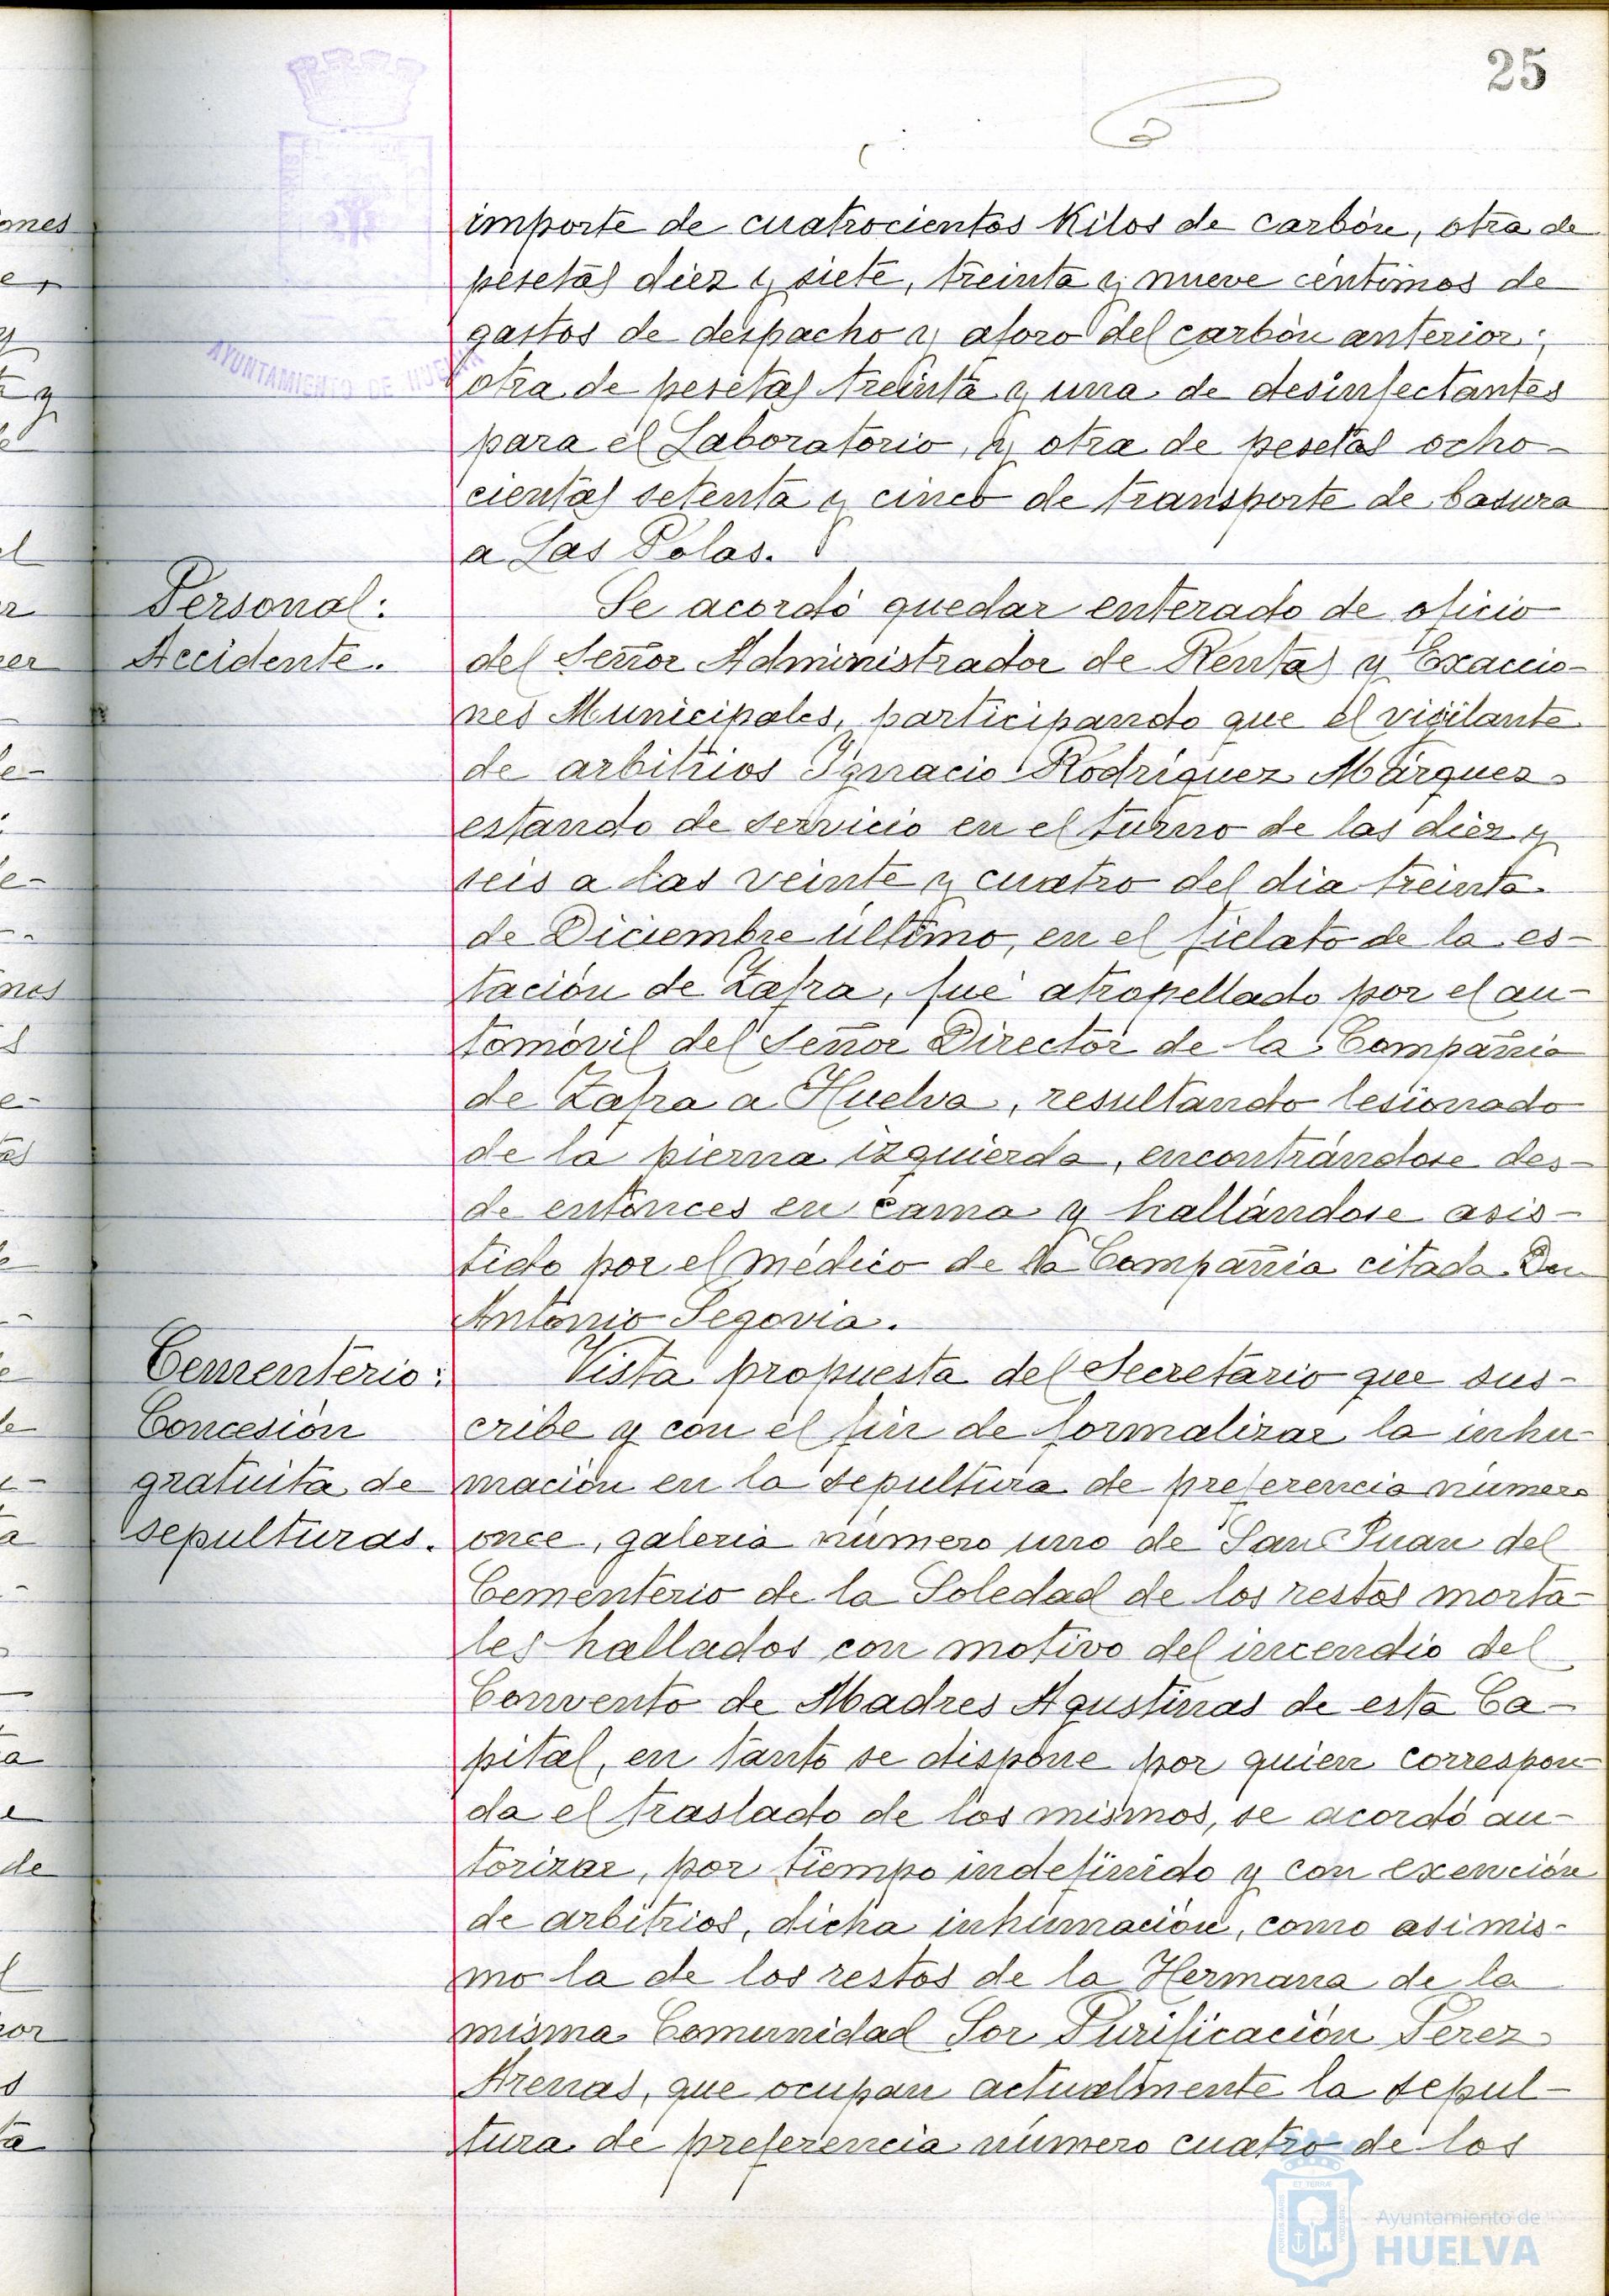 25
importe de cuatrocientos Kilos de carbón, otra de
pesetas diez y siete, treinta y nueve céntimos de
gastos de despacho y aforo del carbón anterior;
otra de pesetas treinta y una de desinfectantes
para el Laboratorio, y otra de pesetas ocho-
cientas setenta y cinco de transporte de basura
a Las Polas.
Personal:
Accidente.
Se acordó quedar enterado de oficio
del Señor Administrador de Rentas y Exaccio-
nes Municipales, participando que el vigilante
de arbitrios Ignacio Rodríguez Márquez
estando de servicio en el turno de las diez y
seis a las veinte y cuatro del dia treinta
de Diciembre último, en el fielato de la es-
tación de Zafra, fué atropellado por el au-
tomóvil del Señor Director de la Compañia
de Zafra a Huelva, resultando lesionado
de la pierna izquierda, encontrándose des-
de entonces en cama y hallándose asis-
tido por el médico de la Compañia citada Don
Antonio Segovia.
Cementerio:
Concesión
gratuita de
sepulturas.
Vista propuesta del Secretario que sus-
cribe y con el fin de formalizar la inhu-
mación en la sepultura de preferencia número
once, galeria número uno de San Juan del
Cementerio de la Soledad de los restos morta-
les hallados con motivo del incendio del
Convento de Madres Agustinas de esta Ca-
pital, en tanto se dispone por quien correspon-
da el traslado de los mismos, se acordó au-
torizar, por tiempo indefinido y con exención
de arbitrios, dicha inhumación, como asimis-
mo la de los restos de la Hermana de la
misma Comunidad Sor Purificación Perez
Arenas, que ocupan actualmente la sepul-
tura de preferencia número cuatro de los
AYUNTAMIENTO DE HUELVA
Ayuntamiento de
HUELVA